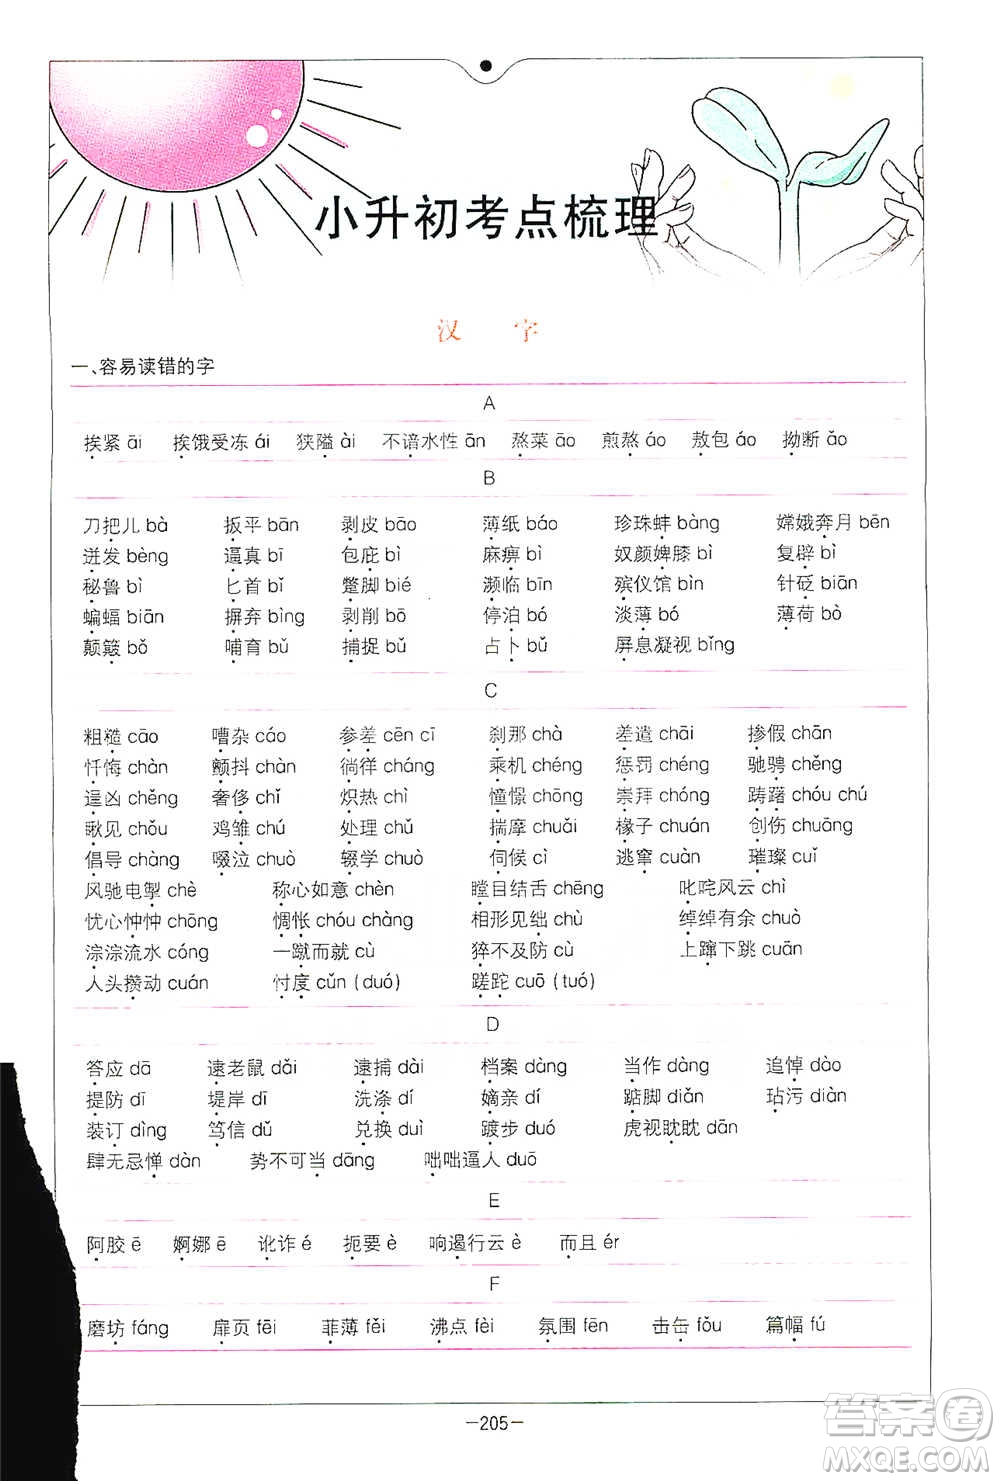 小升初考点梳理
汉 字
一、容易读错的字
A
挨紧 āi 挨饿受冻 ái 狭隘 ài 不谙水性 ān 熬菜 āo 煎熬 áo 敖包 áo 拗断 ǎo
B
刀把儿 bà 扳平 bān 剥皮 bāo 薄纸 báo 珍珠蚌 bàng 嫦娥奔月 bēn
迸发 bèng 逼真 bī 包庇 bì 麻痹 bì 奴颜婢膝 bì 复辟 bì
秘鲁 bì 匕首 bǐ 蹩脚 bié 濒临 bīn 殡仪馆 bìn 针砭 biān
蝙蝠 biān 摒弃 bìng 剥削 bō 停泊 bó 淡薄 bó 薄荷 bò
颠簸 bǒ 哺育 bǔ 捕捉 bǔ 占卜 bǔ 屏息凝视 bǐng
C
粗糙 cāo 嘈杂 cáo 参差 cēn cī 刹那 chà 差遣 chāi 掺假 chān
忏悔 chàn 颤抖 chàn 徜徉 cháng 乘机 chéng 惩罚 chéng 驰骋 chěng
逞凶 chěng 奢侈 chǐ 炽热 chì 憧憬 chōng 崇拜 chóng 踌躇 chóu chú
瞅见 chǒu 鸡雏 chú 处理 chǔ 揣摩 chuǎi 椽子 chuán 创伤 chuāng
倡导 chàng 啜泣 chuò 辍学 chuò 伺候 cì 逃窜 cuàn 璀璨 cuǐ
风驰电掣 chè 称心如意 chèn 瞠目结舌 chēng 叱咤风云 chì
忧心忡忡 chōng 惆怅 chóu chàng 相形见绌 chù 绰绰有余 chuò
淙淙流水 cóng 一蹴而就 cù 猝不及防 cù 上蹿下跳 cuān
人头攒动 cuán 忖度 cǔn (duó) 蹉跎 cuō (tuó)
D
答应 dā 逮老鼠 dǎi 逮捕 dài 档案 dàng 当作 dàng 追悼 dào
提防 dī 堤岸 dī 洗涤 dí 嫡亲 dí 踮脚 diǎn 玷污 diàn
装订 dìng 笃信 dǔ 兑换 duì 踱步 duó 虎视眈眈 dān
肆无忌惮 dàn 势不可当 dāng 咄咄逼人 duō
E
阿胶 ē 婀娜 ē 讹诈 é 扼要 è 响遏行云 è 而且 ér
F
磨坊 fáng 扉页 fēi 菲薄 fěi 沸点 fèi 氛围 fēn 击缶 fǒu 篇幅 fú
-205-
答案圈
MXQE.COM